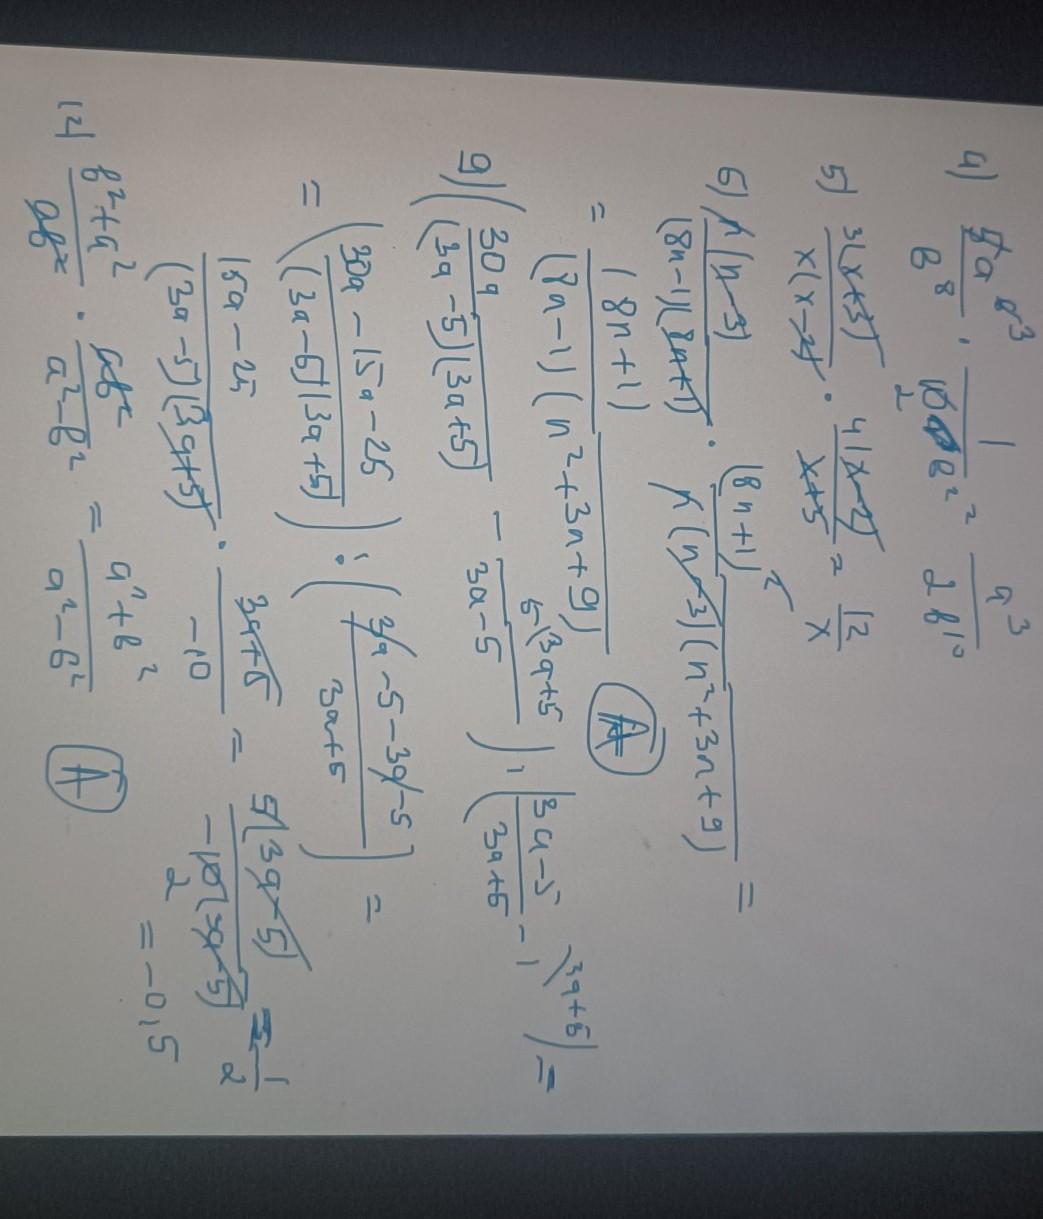 4) 5a^{4 3}/b^8 · 1/(10 a b^2) = a^3/2b^{10}
2
5) 3(x+5)/x(x-4) · 4(x-4)/x+5 = 12/x
6) n(n-3)/(8n-1)(8n+1) · (8n+1)^2/n(n-3)(n^2+3n+9) =
= (8n+1)/(8n-1)(n^2+3n+9) A
9) (30a/(3a-5)(3a+5) - 5\(3a+5/3a-5) : (3a-5/3a+5 - 1\3a+5) =
= (30a-15a-25/(3a-5)(3a+5)) : (3a-5-3a-5/3a+5) =
15a-25/(3a-5)(3a+5) · 3a+5/-10 = 5(3a-5)/-10(3a-5) = -1/2
2
= -0,5
12) b^2+a^2/ab^2 · ab^2/a^2-b^2 = a^2+b^2/a^2-b^2 A